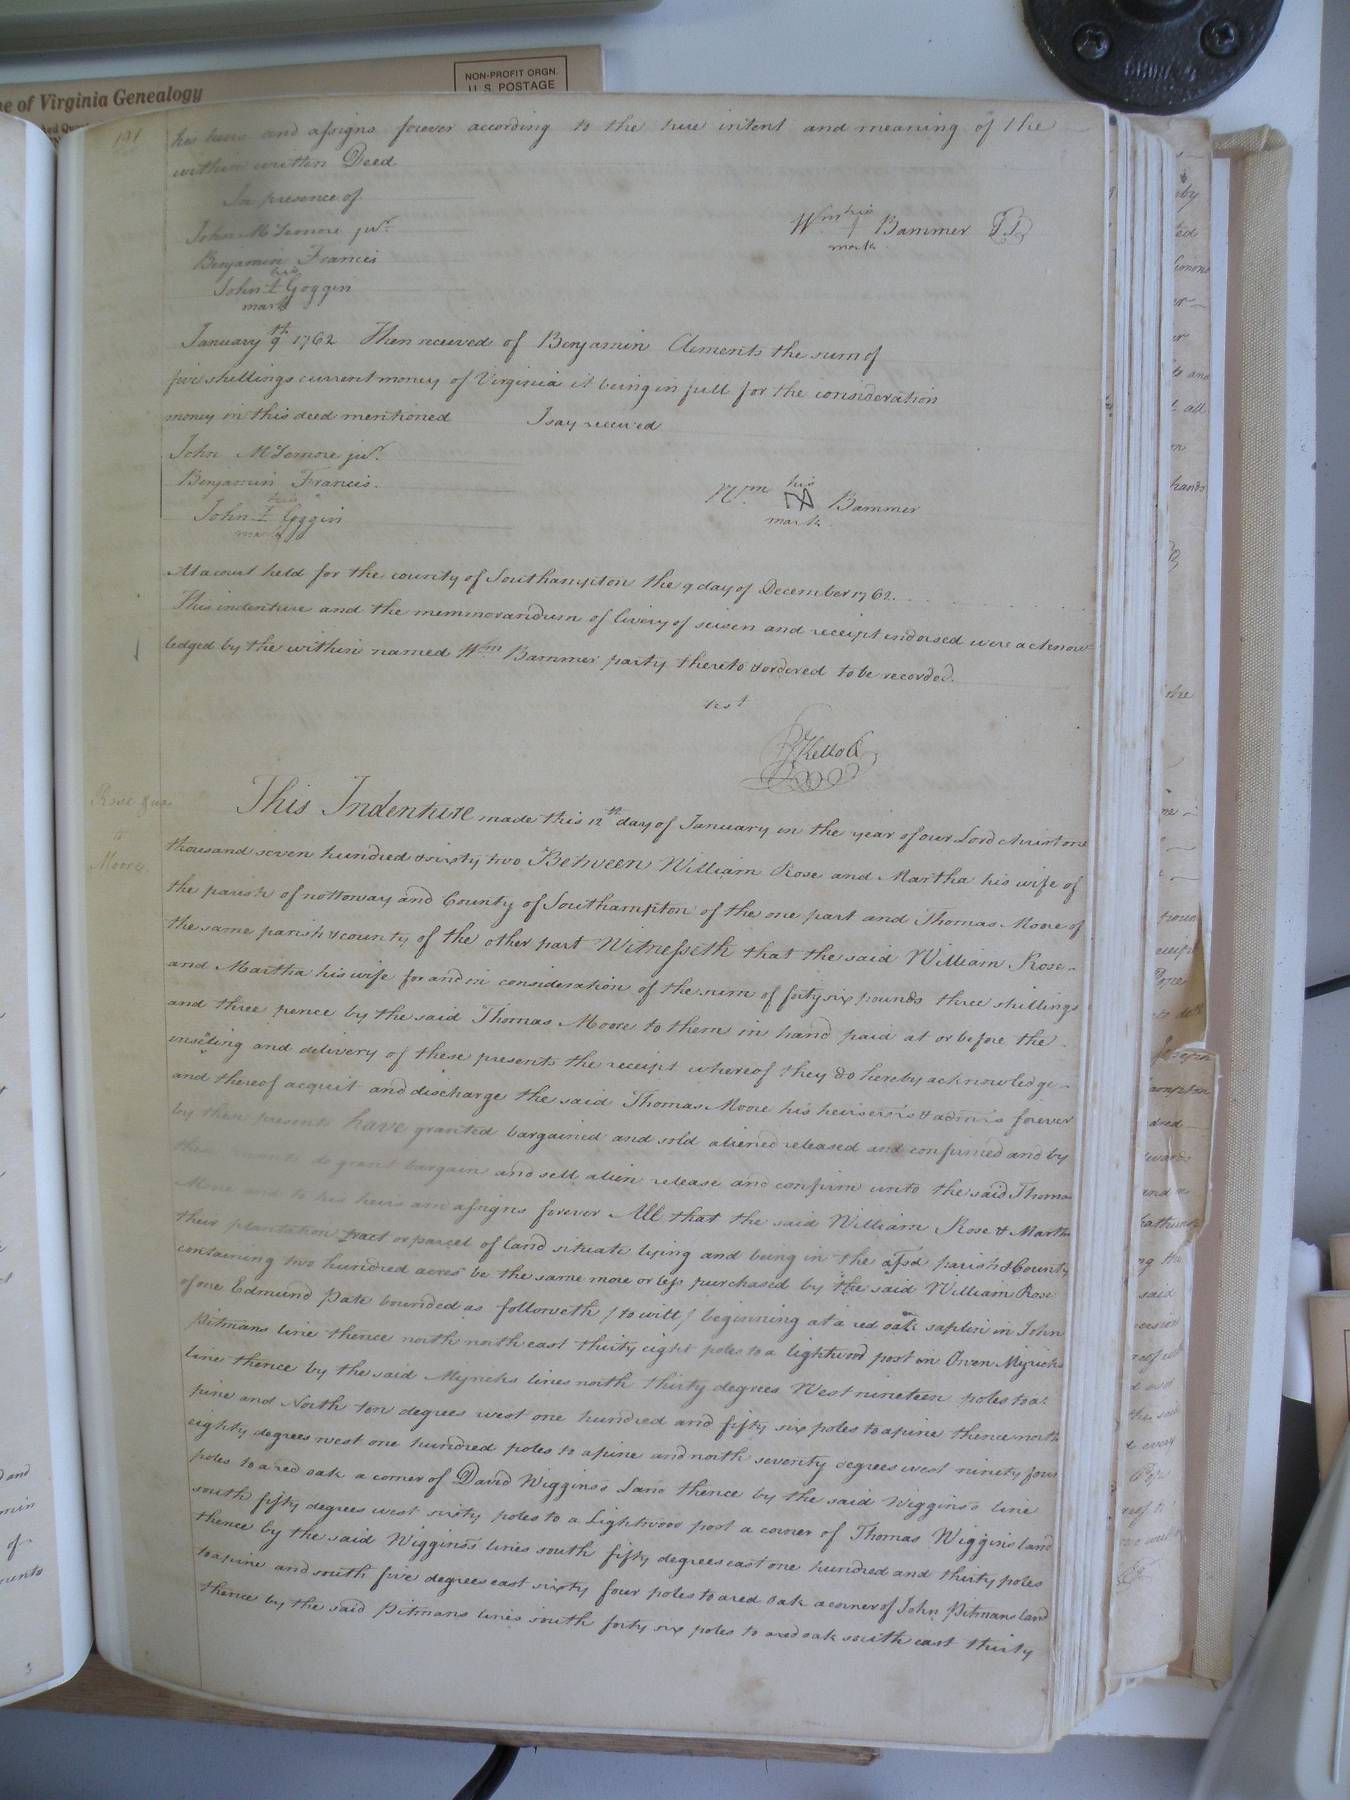 e of Virginia Genealogy
NON-PROFIT ORGN.
U. S. POSTAGE
131
his heirs and assigns forever according to the true intent and meaning of the
within written Deed
In presence of
John McLemore junr.
Benjamin Francis
his
John I Goggin
mark
Wm his Bammer
mark
January 9th 1762 Then received of Benjamin Clements the sum of
five shillings current money of Virginia it being in full for the consideration
money in this deed mentioned I say received
John McLemore junr.
Benjamin Francis.
his
John I Goggin
mark
Wm his Bammer
mark
At a court held for the county of Southampton the 9 day of December 1762.
This indenture and the memmorandum of livery of seisen and receipt indorsed were acknow
ledged by the within named Wm Bammer party thereto & ordered to be recorded.
test
Rose & ux
to
Moore.
This Indenture made this 12th day of January in the year of our Lord christ one
thousand seven hundred & sixty two Between William Rose and Martha his wife of
the parish of nottoway and County of Southampton of the one part and Thomas Moore of
the same parish & county of the other part Witnesseth that the said William Rose
and Martha his wife for and in consideration of the sum of forty six pounds three shillings
and three pence by the said Thomas Moore to them in hand paid at or before the
insealing and delivery of these presents the receipt whereof they do hereby acknowledge
and thereof acquit and discharge the said Thomas Moore his heirs exrs & admrs forever
by these presents have granted bargained and sold aliened released and confirmed and by
these presents do grant bargain and sell alien release and confirm unto the said Thomas
Moore and to his heirs and assigns forever All that the said William Rose & Martha
their plantation tract or parcel of land situate lying and being in the afsd parish & County
containing two hundred acres be the same more or less purchased by the said William Rose
of one Edmund Pate bounded as followeth / to witt / beginning at a red oak saplin in John
Pitmans line thence north north east thirty eight poles to a lightwood post in Owen Myricks
line thence by the said Myricks lines north thirty degrees West nineteen poles to a
pine and North ten degrees west one hundred and fifty six poles to a pine thence north
eighty degrees west one hundred poles to a pine and north seventy degrees west ninety four
poles to a red oak a corner of David Wiggins's Land thence by the said Wiggins's line
south fifty degrees west sixty poles to a Lightwood post a corner of Thomas Wiggins land
thence by the said Wiggins's lines south fifty degrees east one hundred and thirty poles
to a pine and south five degrees east sixty four poles to a red oak a corner of John Pitmans land
thence by the said Pitmans lines south forty six poles to a red oak south east thirty